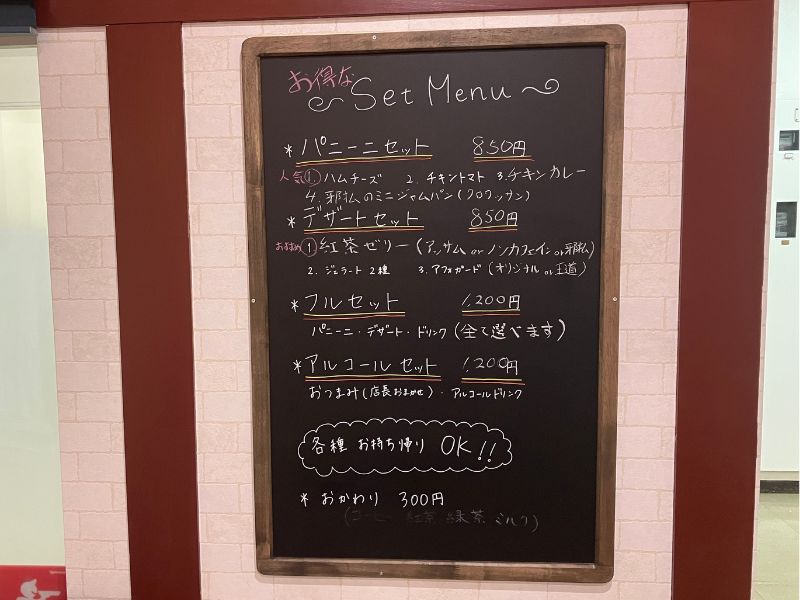 お得な Set Menu
* パニーニセット 850円
人気 ① ハムチーズ 2. チキントマト 3. チキンカレー
4. 邪払のミニジャムパン (クロワッサン)
* デザートセット 850円
おすすめ ① 紅茶ゼリー (アッサム or ノンカフェイン or 邪払)
2. ジェラート 2種 3. アフォガード (オリジナル or 王道)
* フルセット 1,200円
パニーニ・デザート・ドリンク (全て選べます)
* アルコールセット 1,200円
おつまみ (店長おまかせ)・アルコールドリンク
各種 お持ち帰り OK!!
* おかわり 300円
(コーヒー 紅茶 緑茶 ミルク)